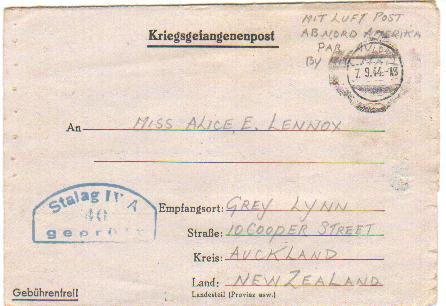 Kriegsgefangenenpost
MIT LUFT POST
AB NORD AMERIKA
PAR
BY
7.9.44.-18
An MISS ALICE. E. LENNOX
Stalag IV A
40
geprüft
Empfangsort: GREY LYNN
Straße: 10 COOPER STREET
Kreis: AUCKLAND
Land: NEW ZEALAND
Landesteil (Provinz usw.)
Gebührenfrei!